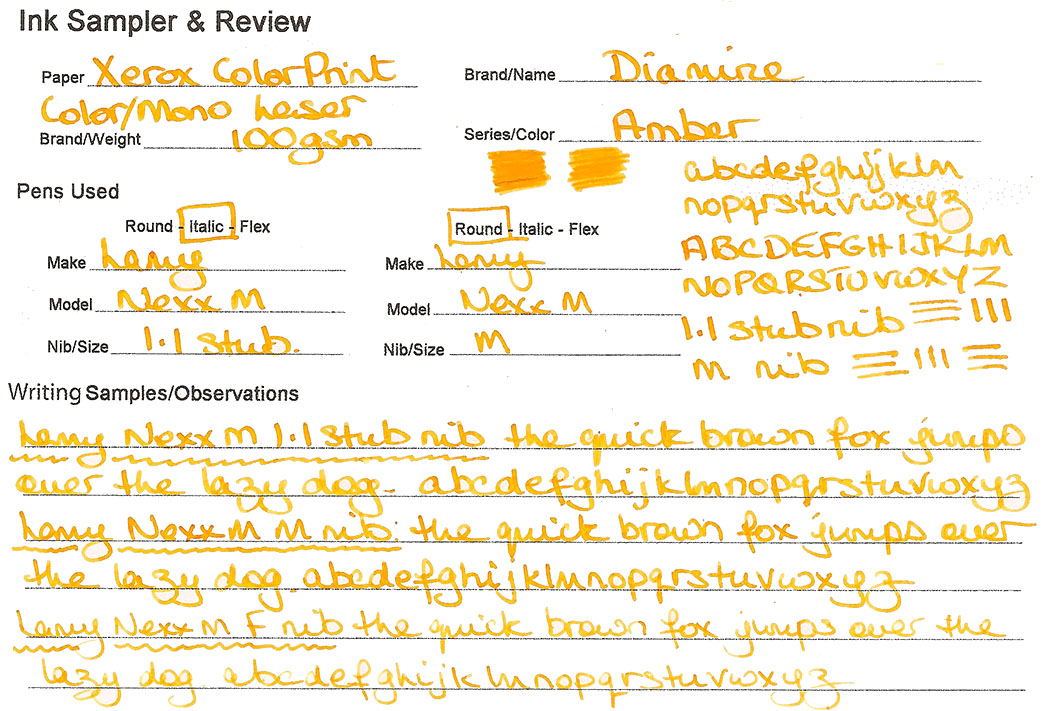 Ink Sampler & Review
Paper Xerox ColorPrint
Color/Mono Laser
Brand/Weight 100gsm
Brand/Name Diamine
Series/Color Amber
abcdefghijklm
nopqrstuvwxyz
ABCDEFGHIJKLM
NOPQRSTUVWXYZ
1.1 stub nib
M nib
Pens Used
Round - Italic - Flex
Make Lamy
Model Nexx M
Nib/Size 1.1 stub.
Round - Italic - Flex
Make Lamy
Model Nexx M
Nib/Size M
Writing Samples/Observations
Lamy Nexx M 1.1 stub nib the quick brown fox jumps
over the lazy dog. abcdefghijklmnopqrstuvwxyz
Lamy Nexx M M nib. the quick brown fox jumps over
the lazy dog. abcdefghijklmnopqrstuvwxyz
Lamy Nexx M F nib the quick brown fox jumps over the
lazy dog abcdefghijklmnopqrstuvwxyz